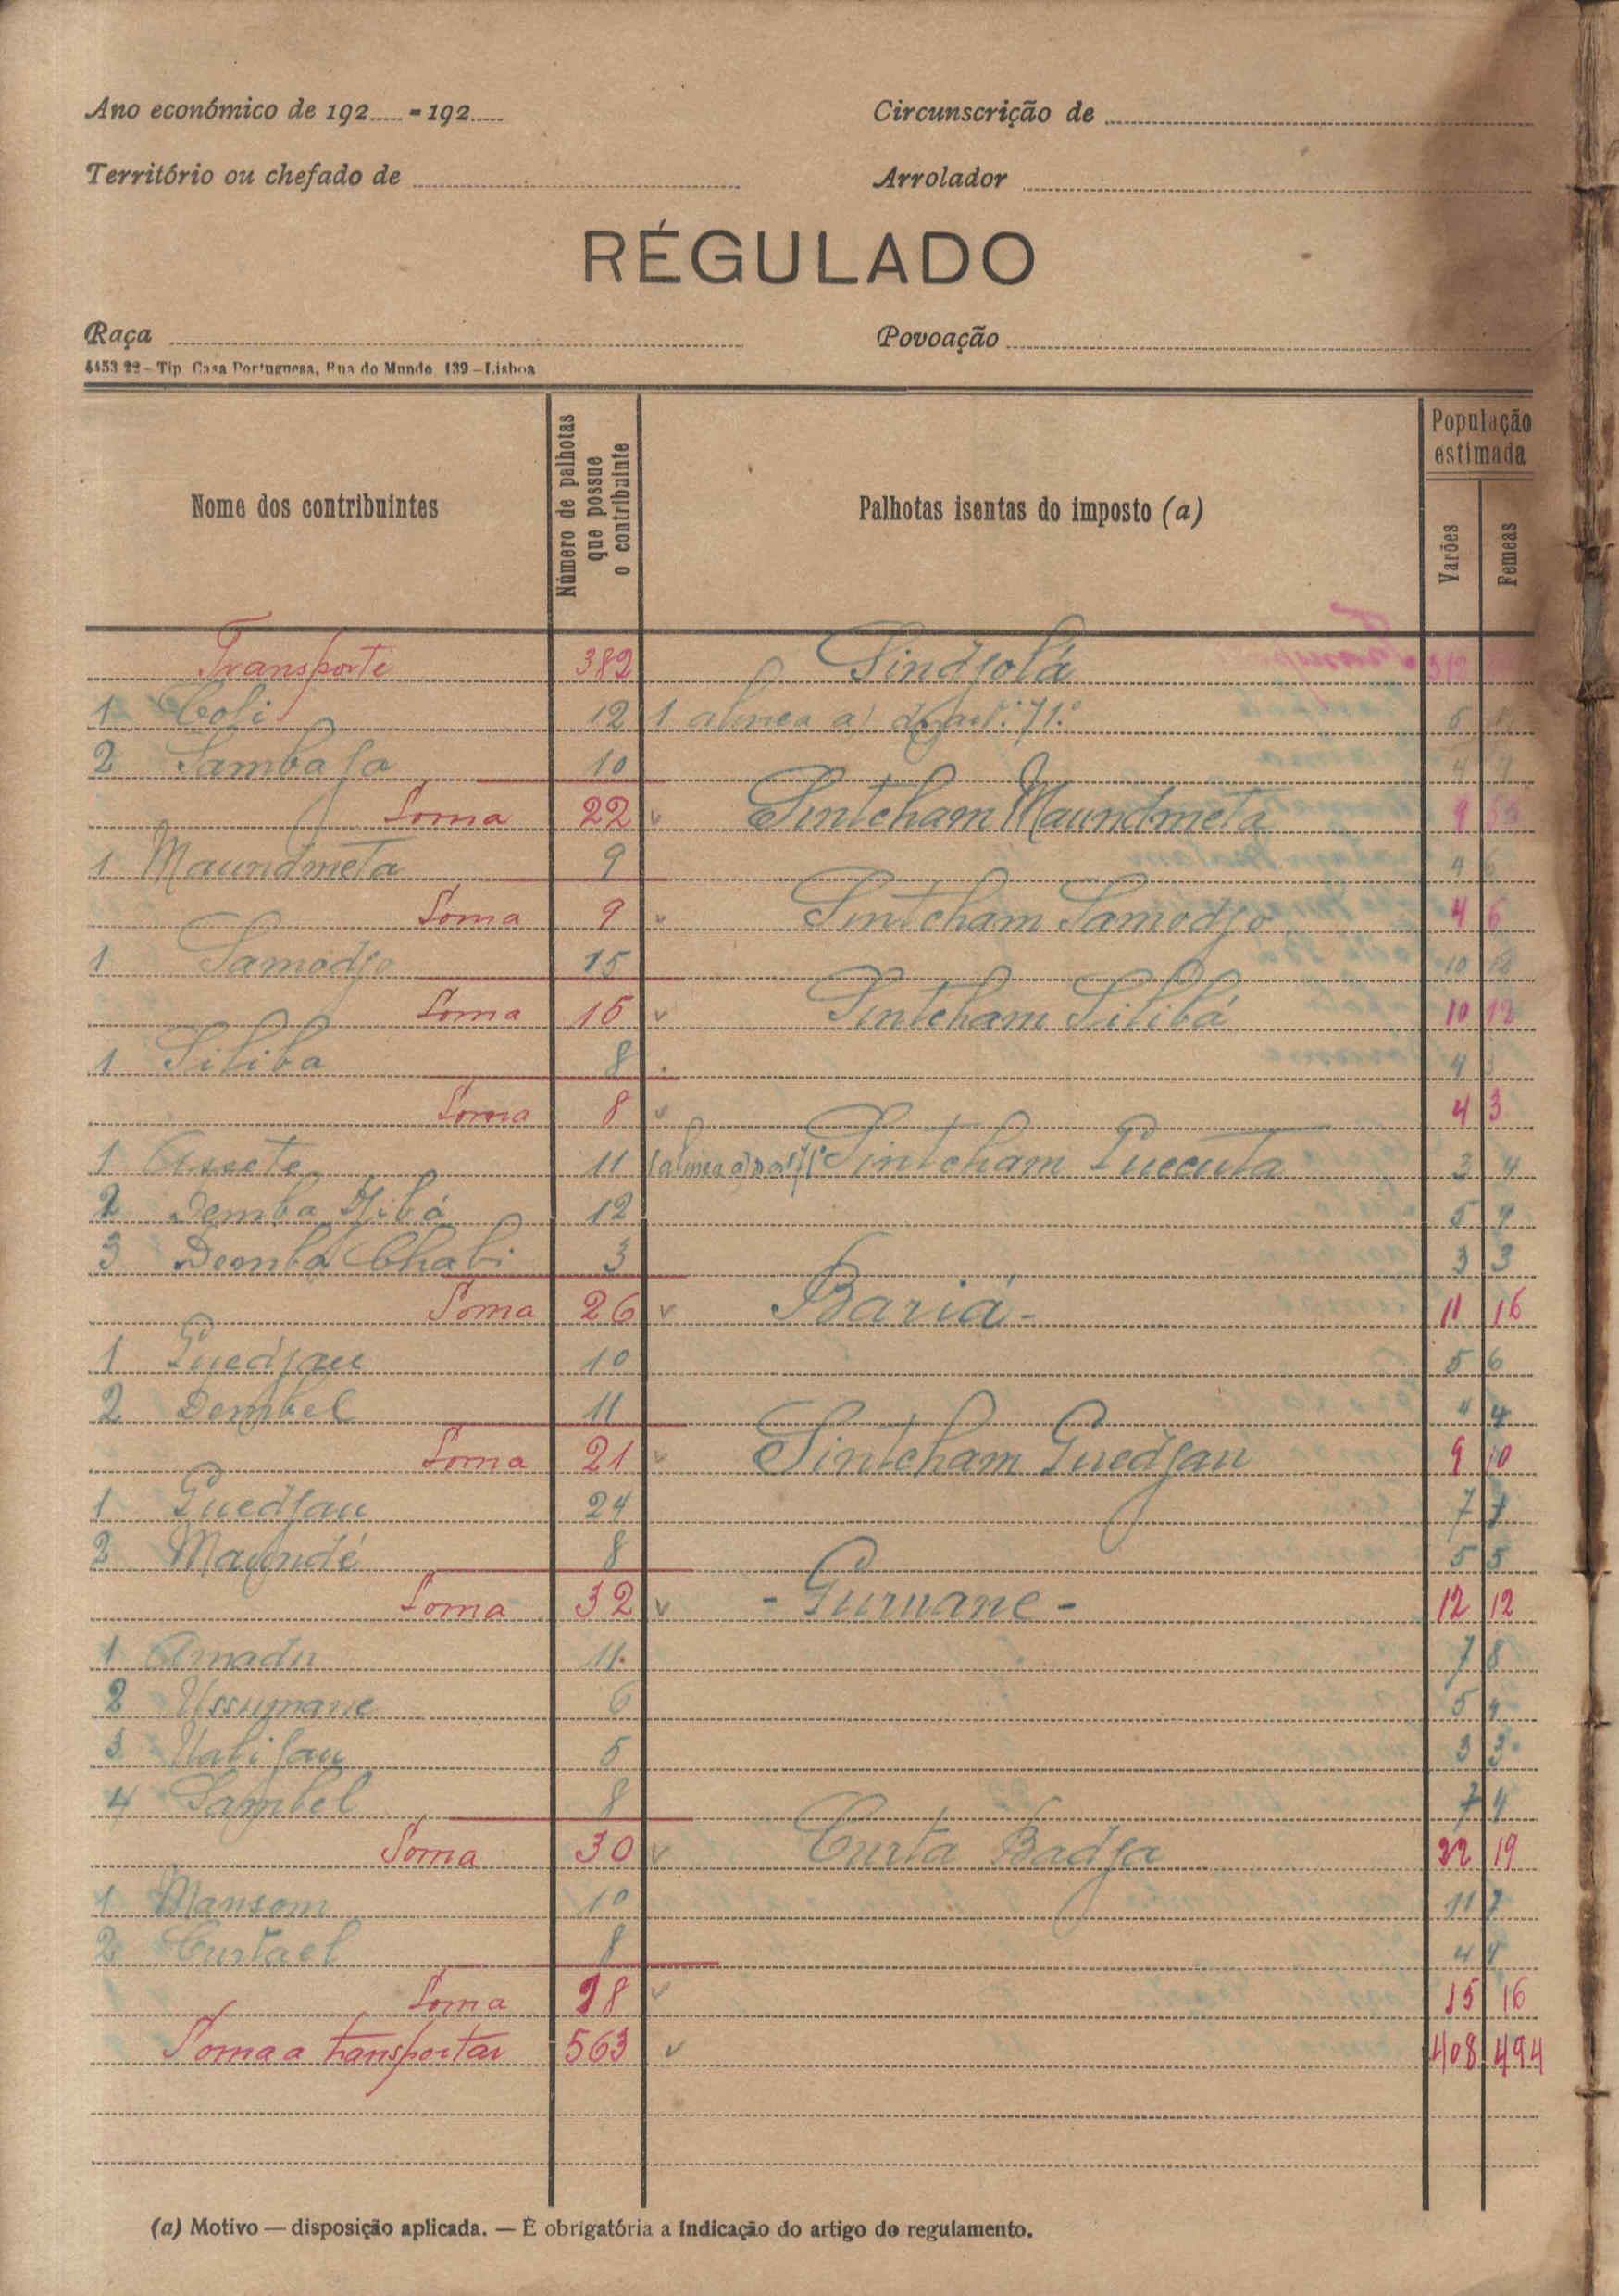 Ano económico de 192..... - 192.....
Circunscrição de
Território ou chefado de
Arrolador
RÉGULADO
Raça
Povoação
4453 22 - Tip. Casa Portuguesa, Rua do Mundo, 139 - Lisboa
Nome dos contribuintes
Número de palhotas que possue o contribuinte
Palhotas isentas do imposto (a)
População estimada
Varões
Femeas
Transporte 382 Sindjolá 312
1 Coli 12 1 alinea a) do art.º 71.º 5
2 Sambaja 10 4
Soma 22 v Sintcham Maundmeta 9
1 Maundmeta 9 4 6
Soma 9 v Sintcham Samodjo 4 6
1 Samodjo 15 10 12
Soma 15 v Sintcham Silibá 10 12
1 Siliba 8 4 3
Soma 8 v 4 3
1 11 1 alinea a) Sintcham 3 4
2 Demba 12 5 9
3 Demba Chabi 3 3 3
Soma 26 v Bariá - 11 16
1 Guedjau 10 5 6
2 Dembel 11 4 4
Soma 21 v Sintcham Guedjau 9 10
1 Guedjau 24 7 7
2 Maundé 8 5 5
Soma 32 v - Guruane - 12 12
1 Amadu 11. 7 8
2 Ussumane 6 5 4
3 5 3 3
4 Sambel 8 7 4
Soma 30 v Curta Badja 22 19
1 Mansom 10 11
2 Curtael 8 4
Soma 18 v 15 16
Soma a transportar 563 v 408 494
(a) Motivo — disposição aplicada. — É obrigatória a indicação do artigo do regulamento.